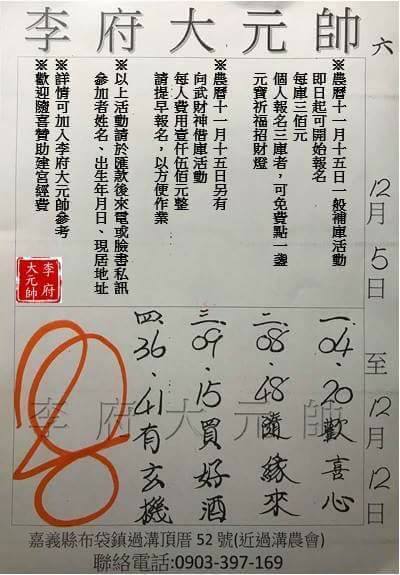 李府大元帥
六
12月5日至12月12日
※農曆十一月十五日一般補庫活動
即日起可開始報名
每庫三佰元
個人報名三庫者，可免費點一盞
元寶祈福招財燈
※農曆十一月十五日另有
向武財神借庫活動
每人費用壹仟伍佰元整
請提早報名，以方便作業
※以上活動請於匯款後來電或臉書私訊
參加者姓名、出生年月日、現居地址
※詳情可加入李府大元帥參考
※歡迎隨喜贊助建宮經費
李府
大元帥
一.04、20歡喜心
二.08、48隨緣來
三.09、15買好酒
四.36、41有玄機
李府大元帥
嘉義縣布袋鎮過溝頂厝52號(近過溝農會)
聯絡電話:0903-397-169